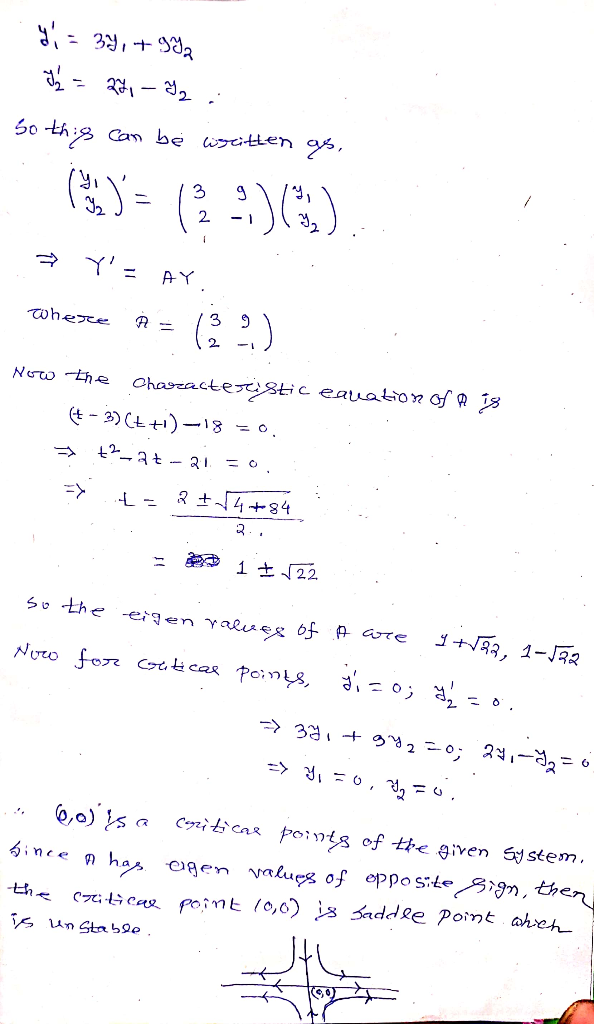 y₁' = 3y₁ + 9y₂
y₂' = 2y₁ - y₂.
So this can be written as,
(y₁ y₂)' = (3 9 2 -1)(y₁ y₂).
⇒ Y' = AY.
where A = (3 9 2 -1)
Now the characteristic equation of A is
(t-3)(t+1) - 18 = 0.
⇒ t² - 2t - 21 = 0.
⇒ t = 2 ± √4+84 / 2.
= 1 ± √22
So the eigen values of A are 1+√22, 1-√22
Now for critical points, y₁' = 0; y₂' = 0.
⇒ 3y₁ + 9y₂ = 0; 2y₁ - y₂ = 0
⇒ y₁ = 0, y₂ = 0.
∴ (0,0) is a critical points of the given system.
Since A has eigen values of opposite sign, then
the critical point (0,0) is saddle point which
is unstable.
(0,0)